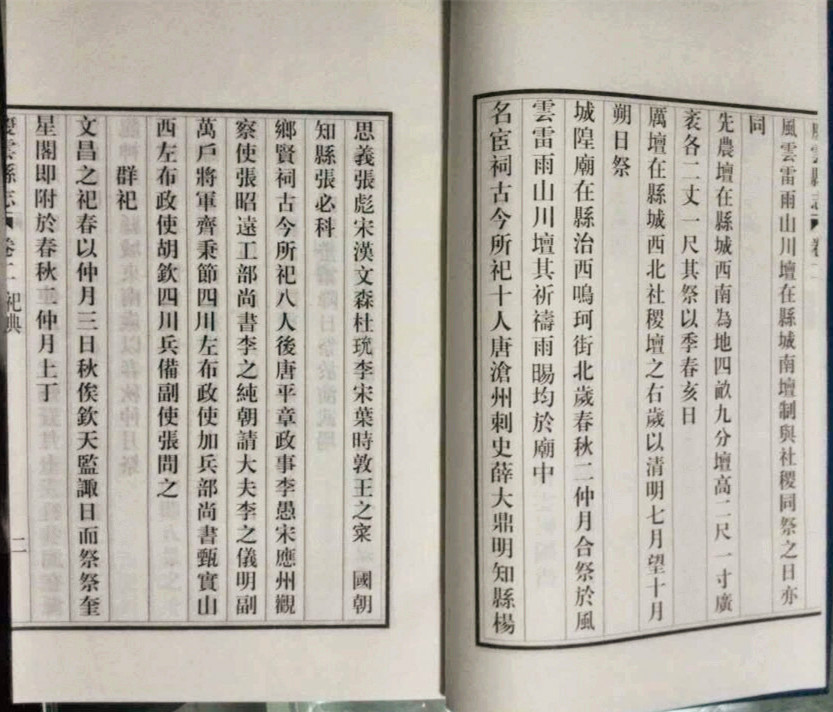 慶雲縣志 卷二
風雲雷雨山川壇在縣城南壇制與社稷同祭之日亦
同
先農壇在縣城西南為地四畝九分壇高二尺一寸廣
袤各二丈一尺其祭以季春亥日
厲壇在縣城西北社稷壇之右歲以清明七月望十月
朔日祭
城隍廟在縣治西鳴珂街北歲春秋二仲月合祭於風
雲雷雨山川壇其祈禱雨暘均於廟中
名宦祠古今所祀十人唐滄州刺史薛大鼎明知縣楊
思義張彪宋漢文森杜珖李宋葉時敦王之寀 國朝
知縣張必科
鄉賢祠古今所祀八人後唐平章政事李愚宋應州觀
察使張昭遠工部尚書李之純朝請大夫李之儀明副
萬戶將軍齊秉節四川左布政使加兵部尚書甄實山
西左布政使胡欽四川兵備副使張問之
群祀
文昌之祀春以仲月三日秋俟欽天監諏日而祭祭奎
星閣即附於春秋二仲月上丁
慶雲縣志 卷二 祀典 二